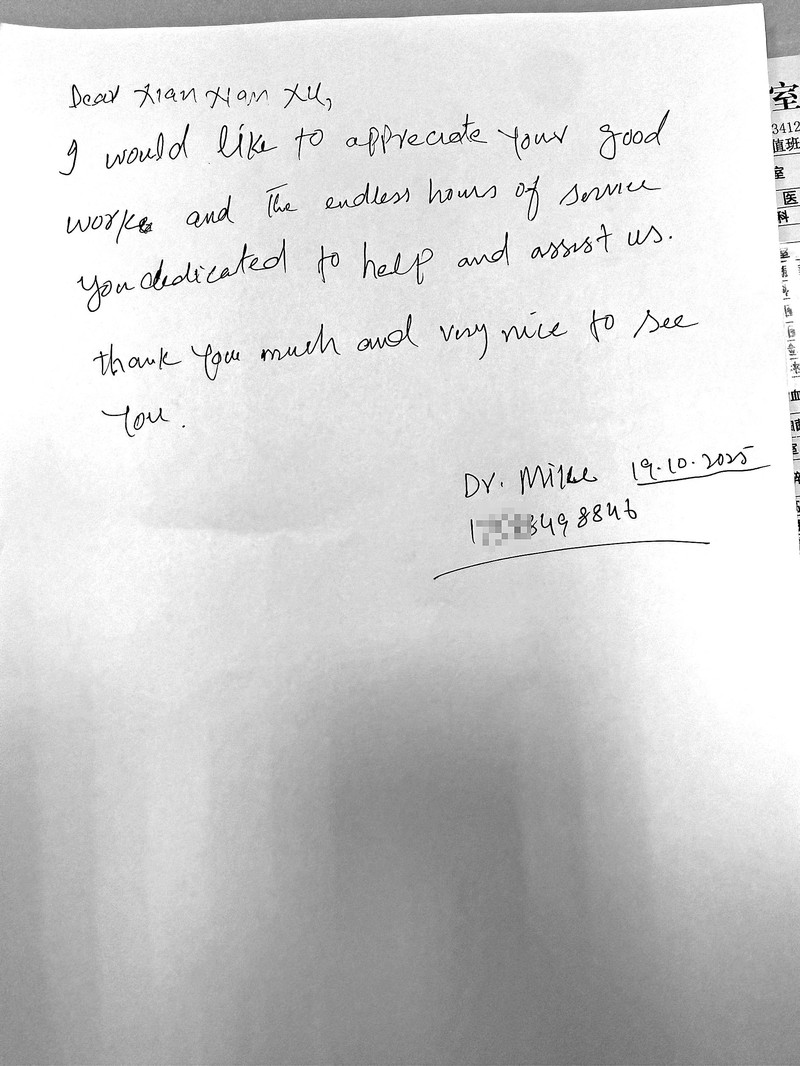 Dear Xian Xian Xu,
I would like to appreciate your good
work and the endless hours of service
you dedicated to help and assist us.
thank you much and very nice to see
you.
Dr. Mike 19.10.2025
498846
室
3412
值班
室
医
科
血
室